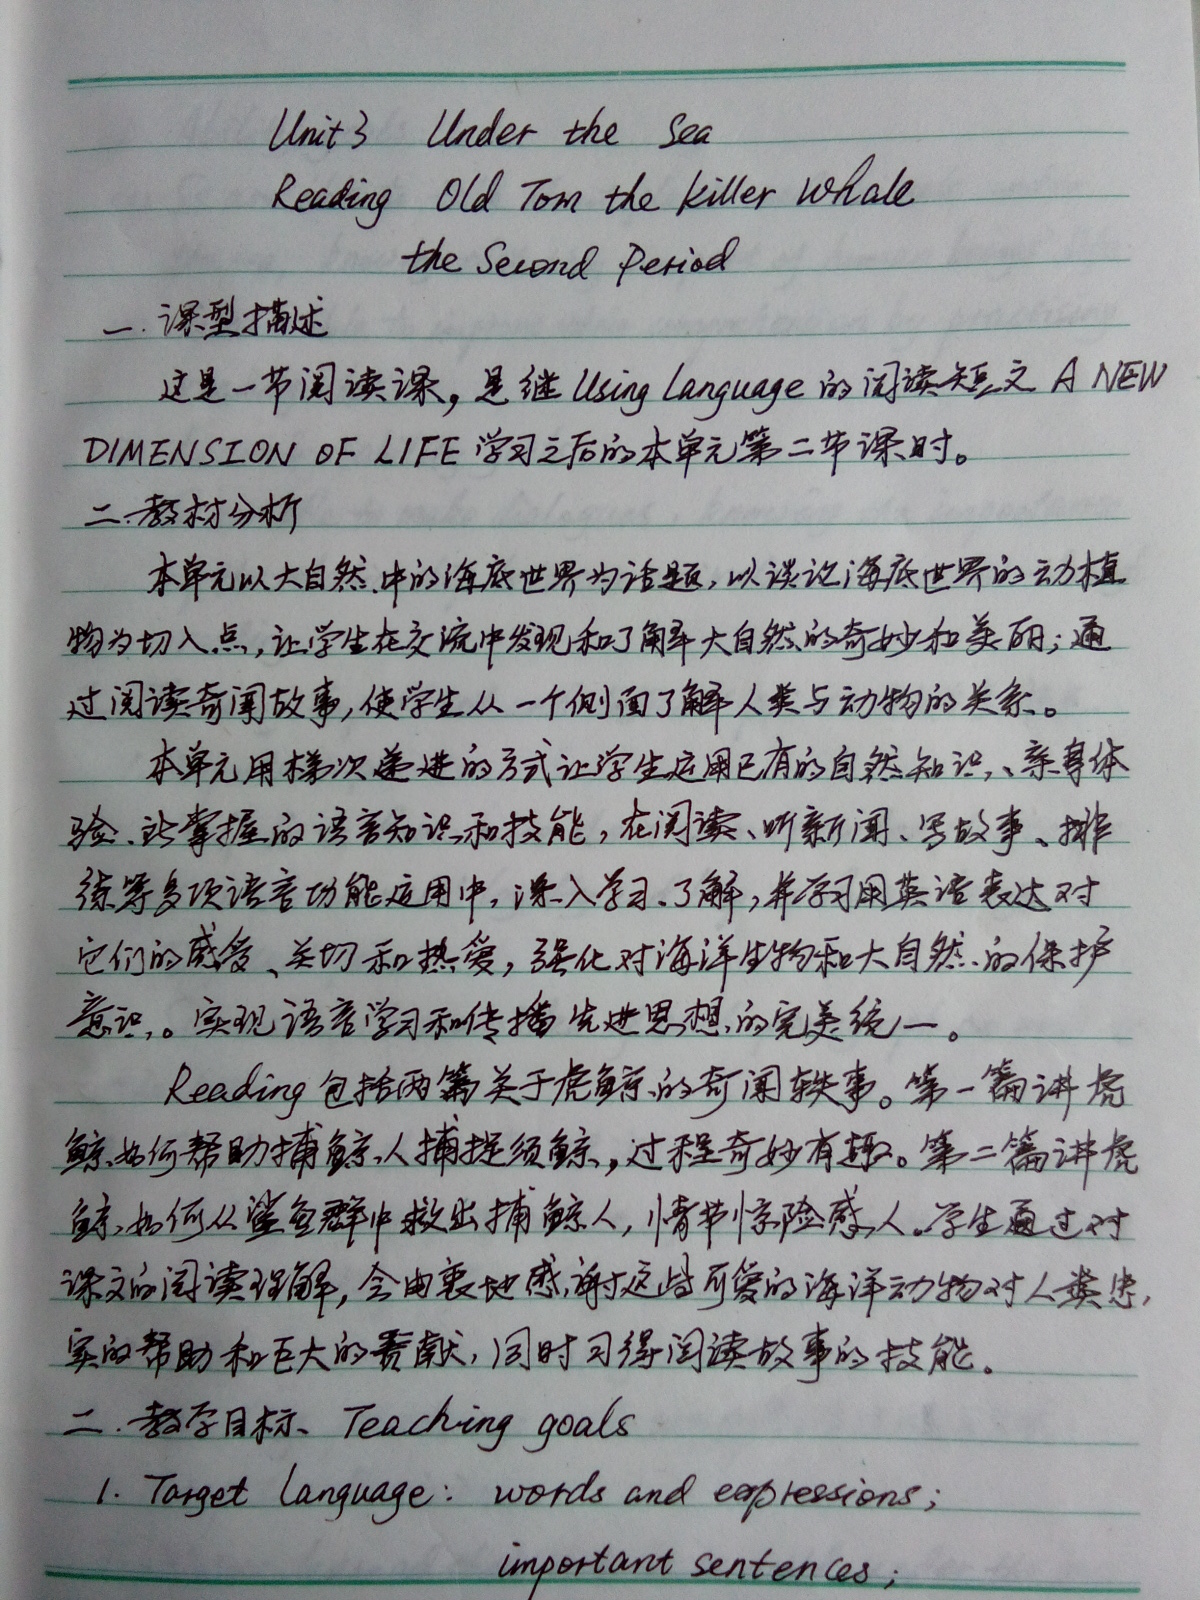 Unit 3 Under the Sea
Reading Old Tom the Killer Whale
the Second Period
一.课型描述
这是一节阅读课，是继Using Language的阅读短文 A NEW
DIMENSION OF LIFE 学习之后的本单元第二节课时。
二.教材分析
本单元以大自然中的海底世界为话题，以谈论海底世界的动植
物为切入点，让学生在交流中发现和了解大自然的奇妙和美丽；通
过阅读奇闻故事，使学生从一个侧面了解人类与动物的关系。
本单元用梯次递进的方式让学生运用已有的自然知识、亲身体
验、所掌握的语言知识和技能，在阅读、听新闻、写故事、排
练等多项语言功能应用中，深入学习、了解，并学习用英语表达对
它们的感受、关切和热爱，强化对海洋生物和大自然的保护
意识。实现语言学习和传播先进思想的完美统一。
Reading包括两篇关于虎鲸的奇闻轶事。第一篇讲虎
鲸如何帮助捕鲸人捕捉须鲸，过程奇妙有趣。第二篇讲虎
鲸如何从鲨鱼群中救出捕鲸人，情节惊险感人。学生通过对
课文的阅读理解，会由衷地感谢这些可爱的海洋动物对人类忠
实的帮助和巨大的贡献，同时习得阅读故事的技能。
二.教学目标、Teaching goals
1. Target language: words and expressions;
important sentences;